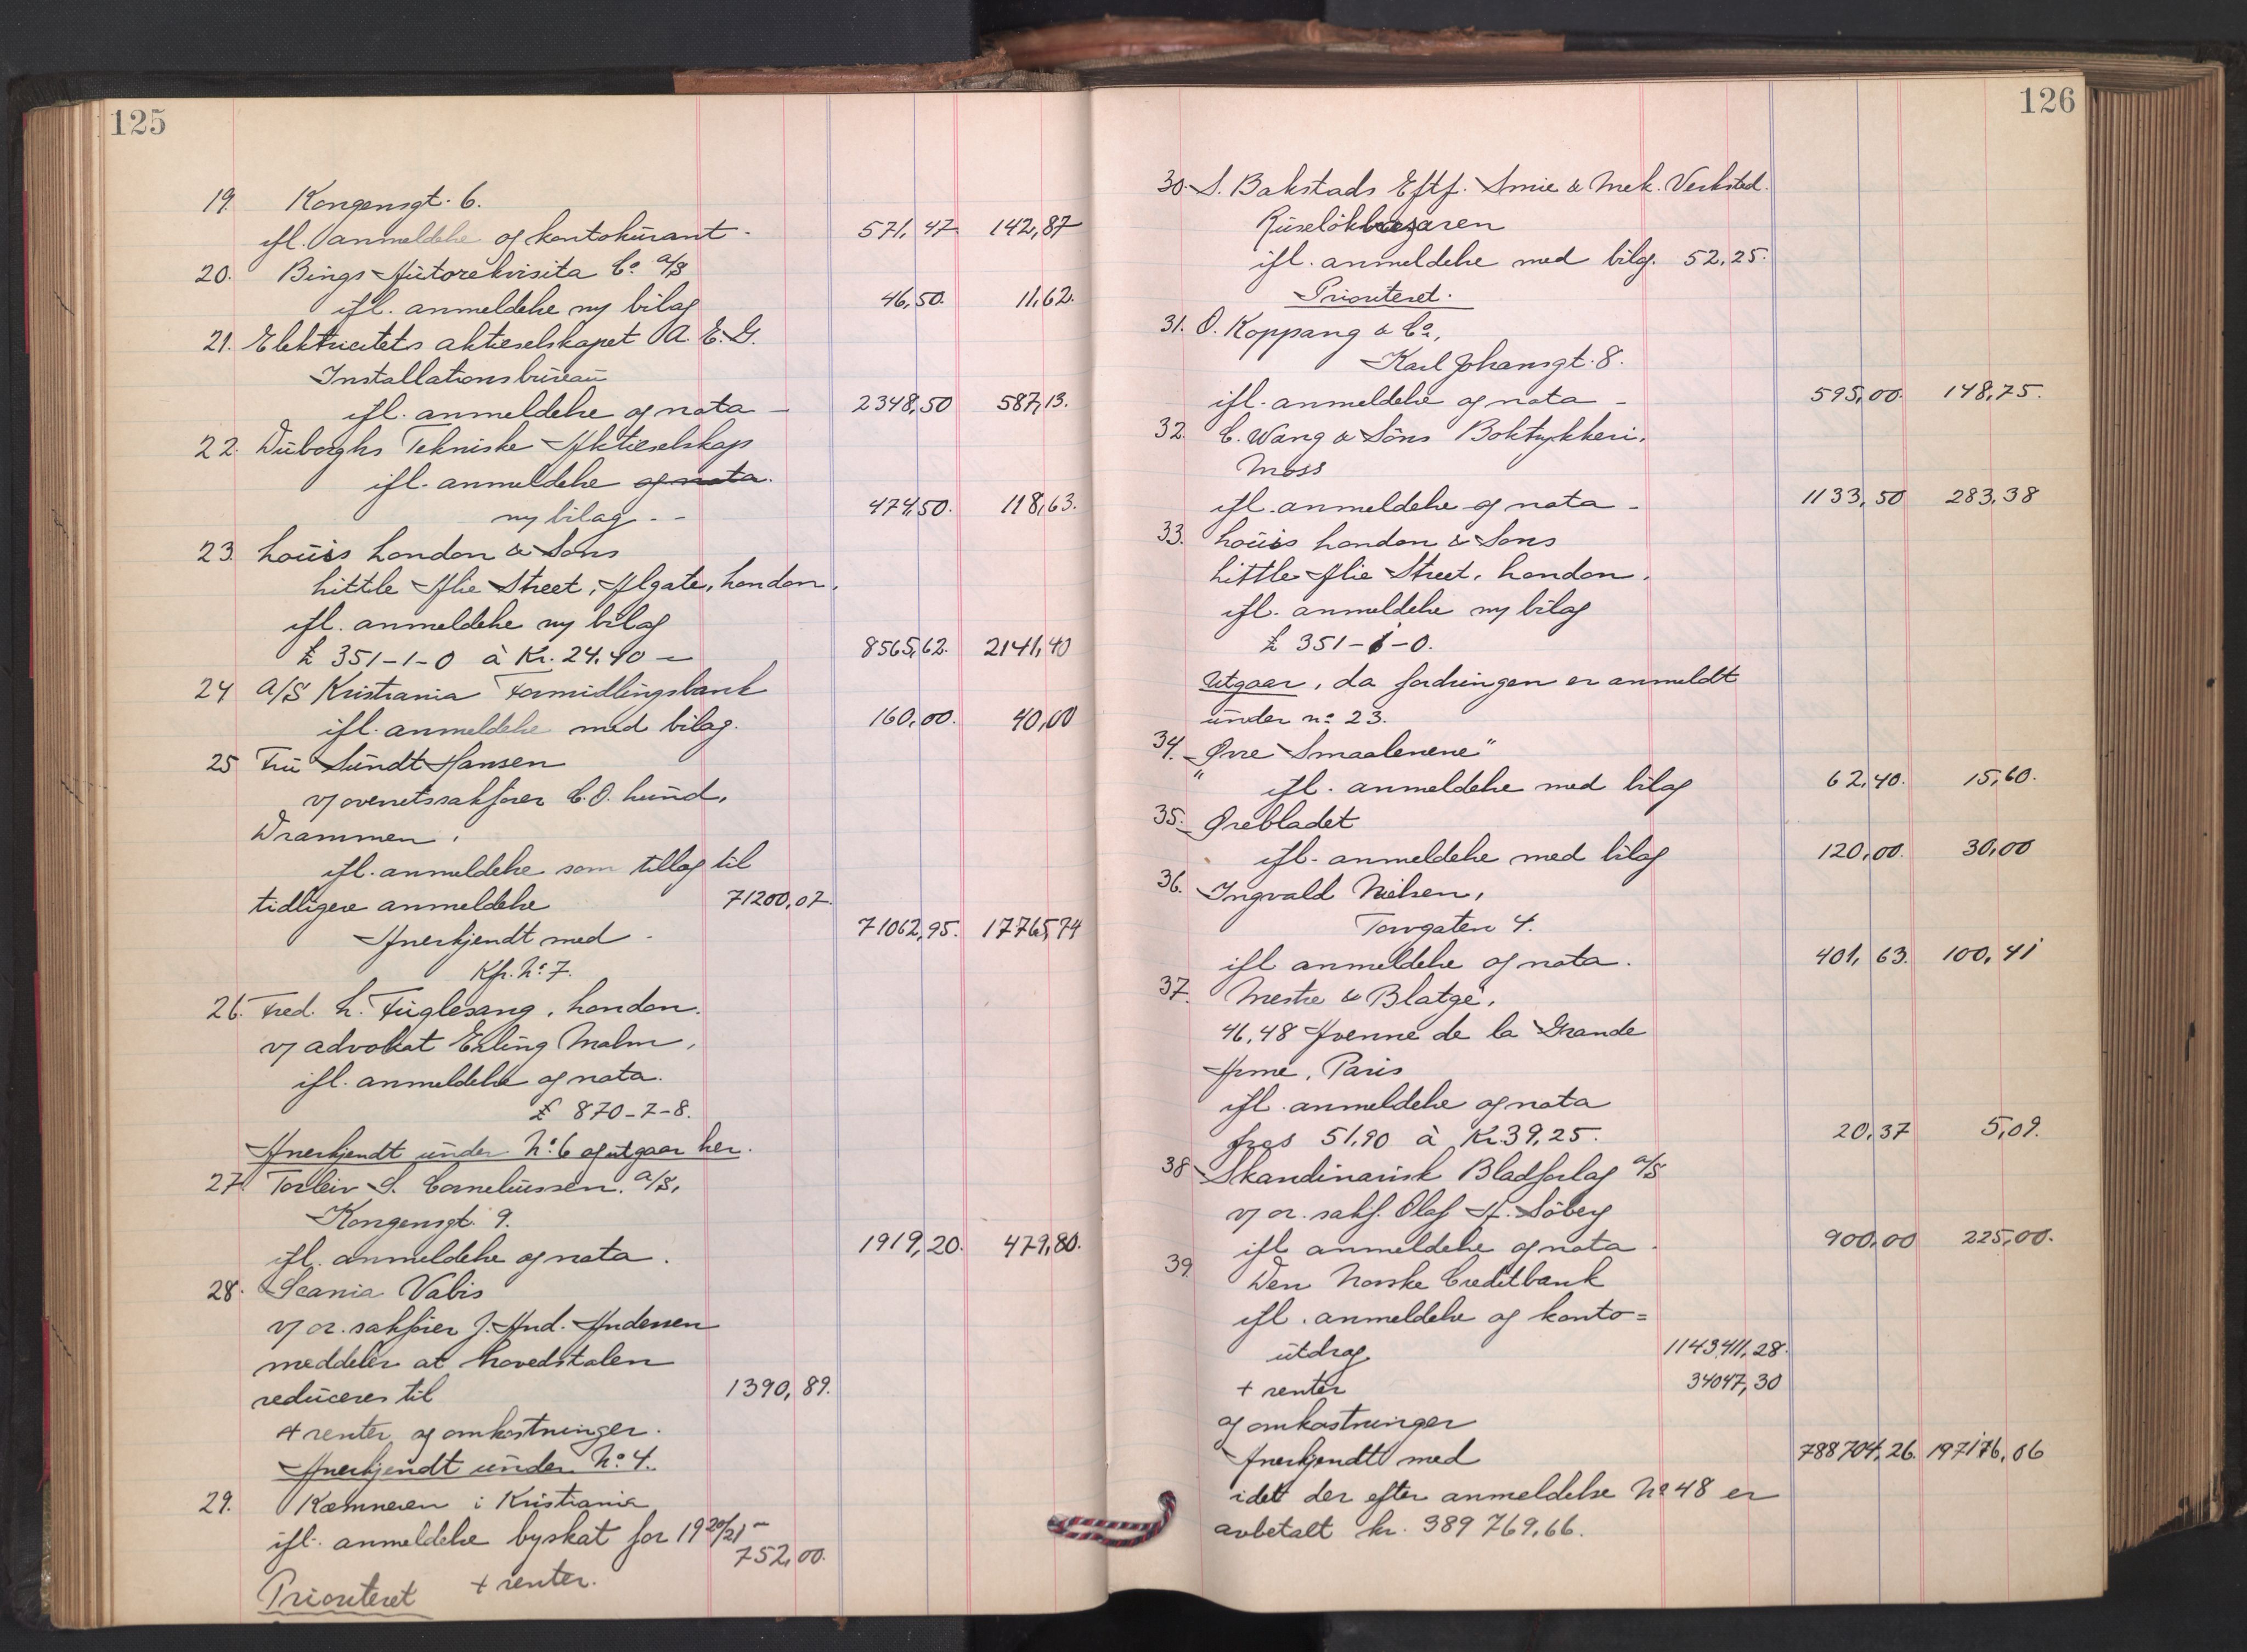 125
19. Kongensgt. 6.
ifl. anmeldelse og kontokurant - 571,47. 142,87
20. Bings Autorekvisita Co. a/s
ifl. anmeldelse m/ bilag 46,50. 11,62.
21. Elektricitets aktieselskapet A. E. G.
Installationsbureau
ifl. anmeldelse og nota - 2348,50 587,13.
22. Duborghs Tekniske Aktieselskap
ifl. anmeldelse og nota.
m/ bilag. - 474,50. 118,63.
23. Louis London & Sons
Little Alie Street, Algate, London.
ifl. anmeldelse m/ bilag
£ 351-1-0 à Kr. 24,40 - 8565,62. 2141,40
24 A/S Kristiania Formidlingsbank
ifl. anmeldelse med bilag. 160,00. 40,00
25 Fru Sundt Hansen
v/ overretssakfører C. O. Lund,
Drammen.
ifl. anmeldelse som tillæg til
tidligere anmeldelse 71200,07.
Anerkjendt med - 71062,95. 17765,74
Kfr. No. 7.
26. Fred. L. Fuglesang, London.
v/ advokat Erling Malm,
ifl. anmeldelse og nota.
£ 870-7-8.
Anerkjendt under No. 6 og utgaar her.
27. Torleiv S. Corneliussen. a/s,
Kongensgt. 9.
ifl. anmeldelse og nota. 1919,20. 479,80.
28. Scania Vabis
v/ or. sakfører J. And. Andersen
meddeler at hovedstolen
reduceres til 1390,89.
+ renter og omkostninger.
Anerkjendt under No. 4.
29. Kæmneren i Kristiania
ifl. anmeldelse byskat for 1920/21 -
752,00.
Prioriteret + renter.
126
30. S. Bakstads Eftf. Smie & Mek. Verksted.
Ruseløkbasaren
ifl. anmeldelse med bilg. 52,25.
Prioriteret.
31. O. Koppang & Co.,
Karl Johansgt. 8.
ifl. anmeldelse og nota - 595,00. 148,75.
32. C. Wang & Söns Boktrykkeri,
Moss
ifl. anmeldelse og nota - 1133,50 283,38
33. Louis London & Sons
Little Alie Street, London.
ifl. anmeldelse m/ bilag
£ 351-1-0.
Utgaar, da fordringen er anmeldt
under no. 23.
34. "Øvre Smaalenene"
ifl. anmeldelse med bilag 62,40. 15,60.
35. Ørebladet
ifl. anmeldelse med bilag 120,00. 30,00
36. Ingvald Nielsen,
Torvgaten 4.
ifl anmeldelse og nota. 401,63. 100,41
37. Mestre & Blatgé,
46,48 Avenue de la Grande
Arme, Paris
ifl. anmeldelse og nota
frcs 51,90 à Kr. 39,25. 20,37 5,09.
38 Skandinavisk Bladforlag a/s
v/ or. sakf. Olaf A. Söberg
ifl anmeldelse og nota. 900,00 225,00.
39. Den Norske Creditbank
ifl. anmeldelse og konto=
utdrag 1143411,28.
+ renter 34047,30
og omkostninger
Anerkjendt med 788704,26. 197176,06
idet der efter anmeldelse No 48 er
avbetalt kr. 389769,66.